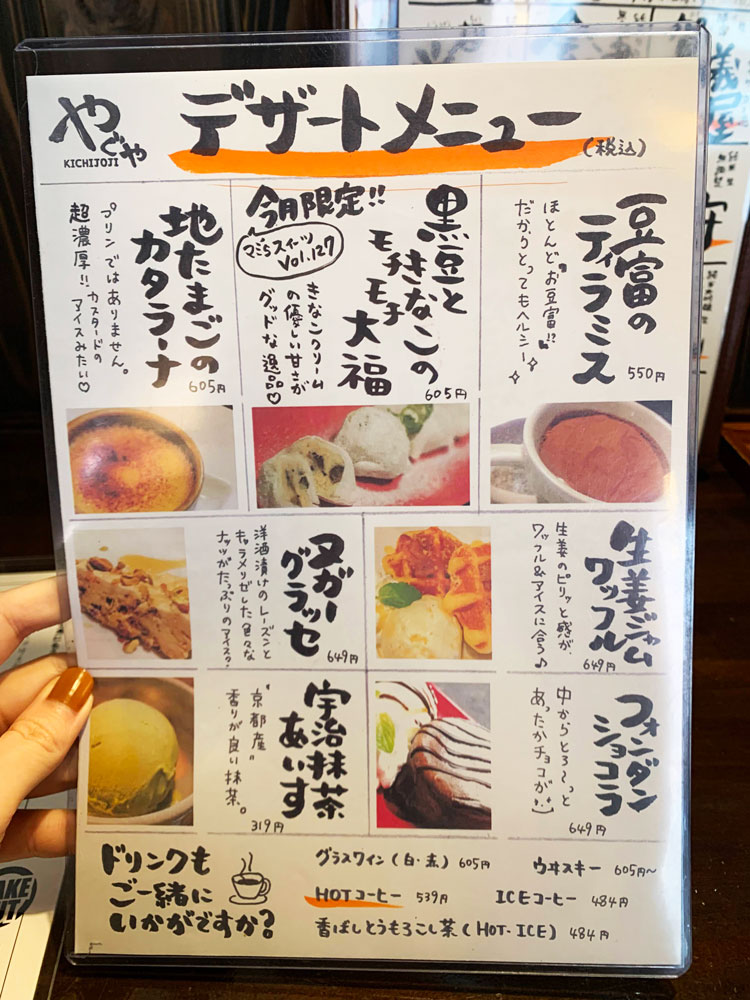 やぐや
KICHIJOJI
デザートメニュー
(税込)
豆富の
ティラミス
550円
ほとんど"お豆富!!"
だからとってもヘルシー
今月限定!!
マジョスイーツ
Vol.127
黒豆と
きなこの
モチモチ
大福
605円
きなこクリーム
の優しい甘さが
グッドな逸品♡
地たまごの
カタラーナ
605円
プリンではありません。
超濃厚!!カスタードの
アイスみたい♡
生姜ジャム
ワッフル
649円
生姜のピリッと感が、
ワッフル&アイスに合う♪
ヌガー
グラッセ
649円
洋酒漬けのレーズンと
キャラメリゼした色々な
ナッツがたっぷりのアイス?
フォンダン
ショコラ
649円
中からとろ〜っと
あったかチョコが
宇治抹茶
あいす
319円
"京都産"
香りが良い抹茶。
ドリンクも
ご一緒に
いかがですか?
グラスワイン(白・赤) 605円
ウヰスキー 605円~
HOTコーヒー 539円
ICEコーヒー 484円
香ばしとうもろこし茶(HOT・ICE) 484円